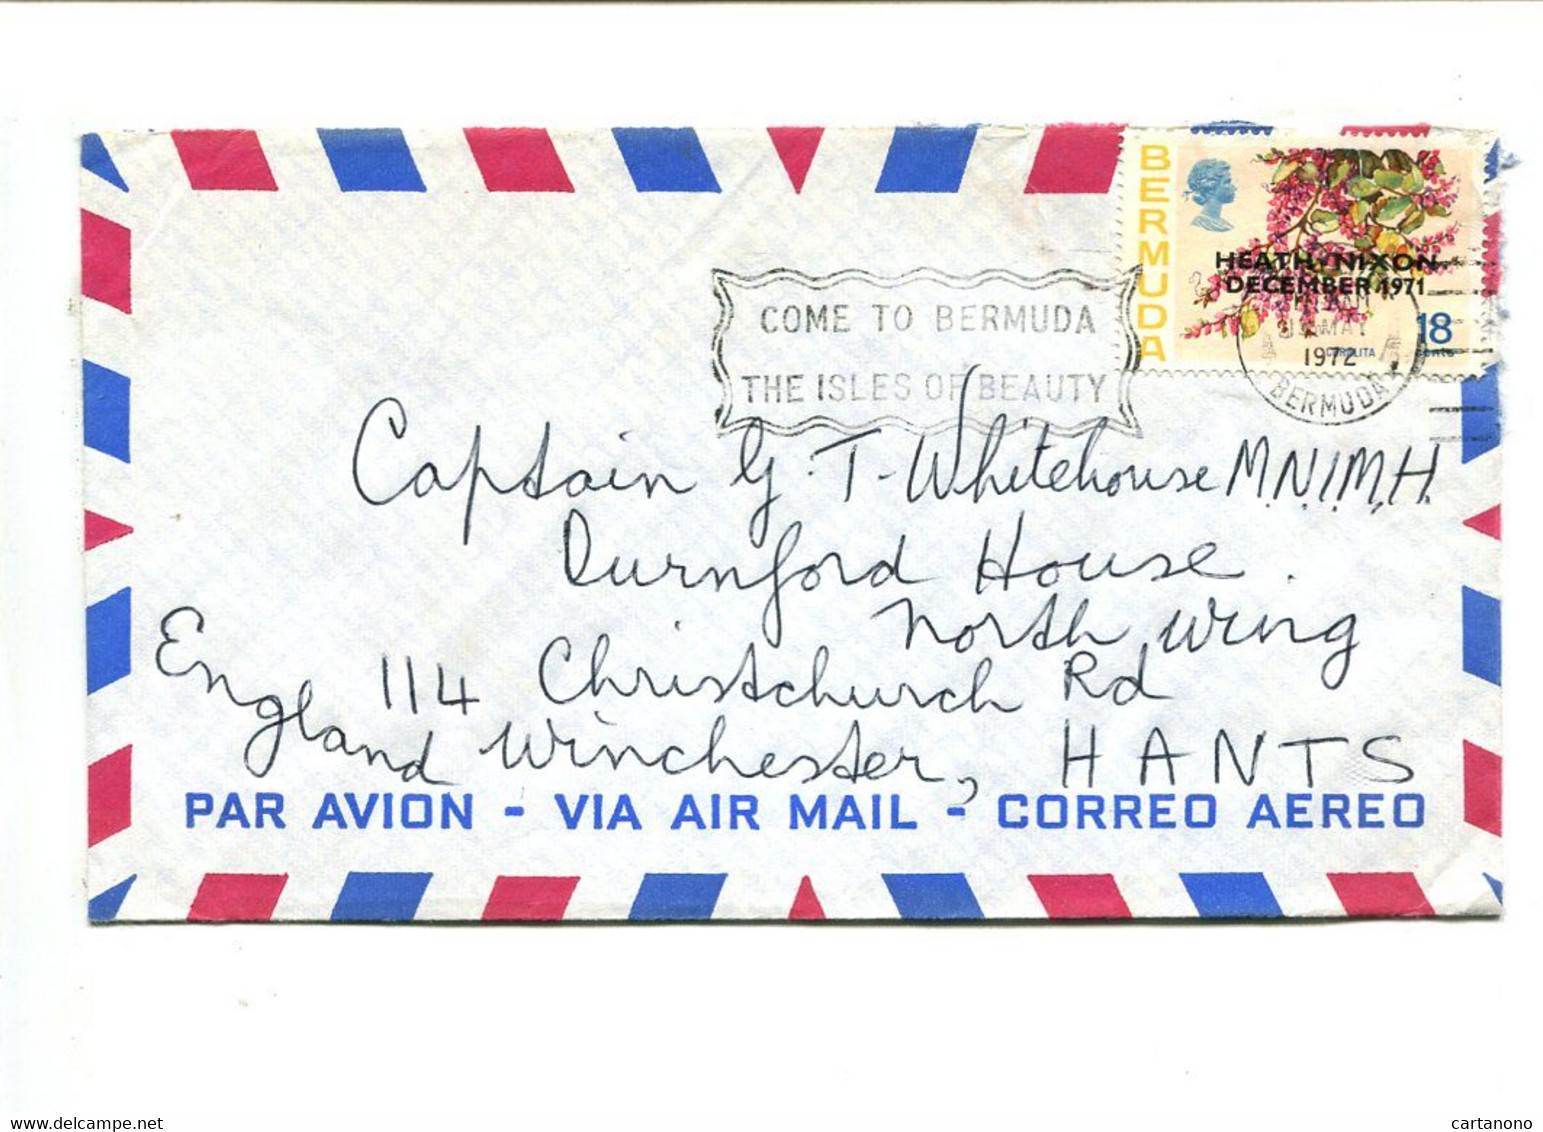 BERMUDA
HEATH-NIXON
DECEMBER 1971
18
cents
MAY
1972
BERMUDA
COME TO BERMUDA
THE ISLES OF BEAUTY
Captain G. T. Whitehouse M.N.I.M.H.
Durnford House.
North Wing
114 Christchurch Rd
Winchester, HANTS
England
PAR AVION - VIA AIR MAIL - CORREO AEREO
cartanono